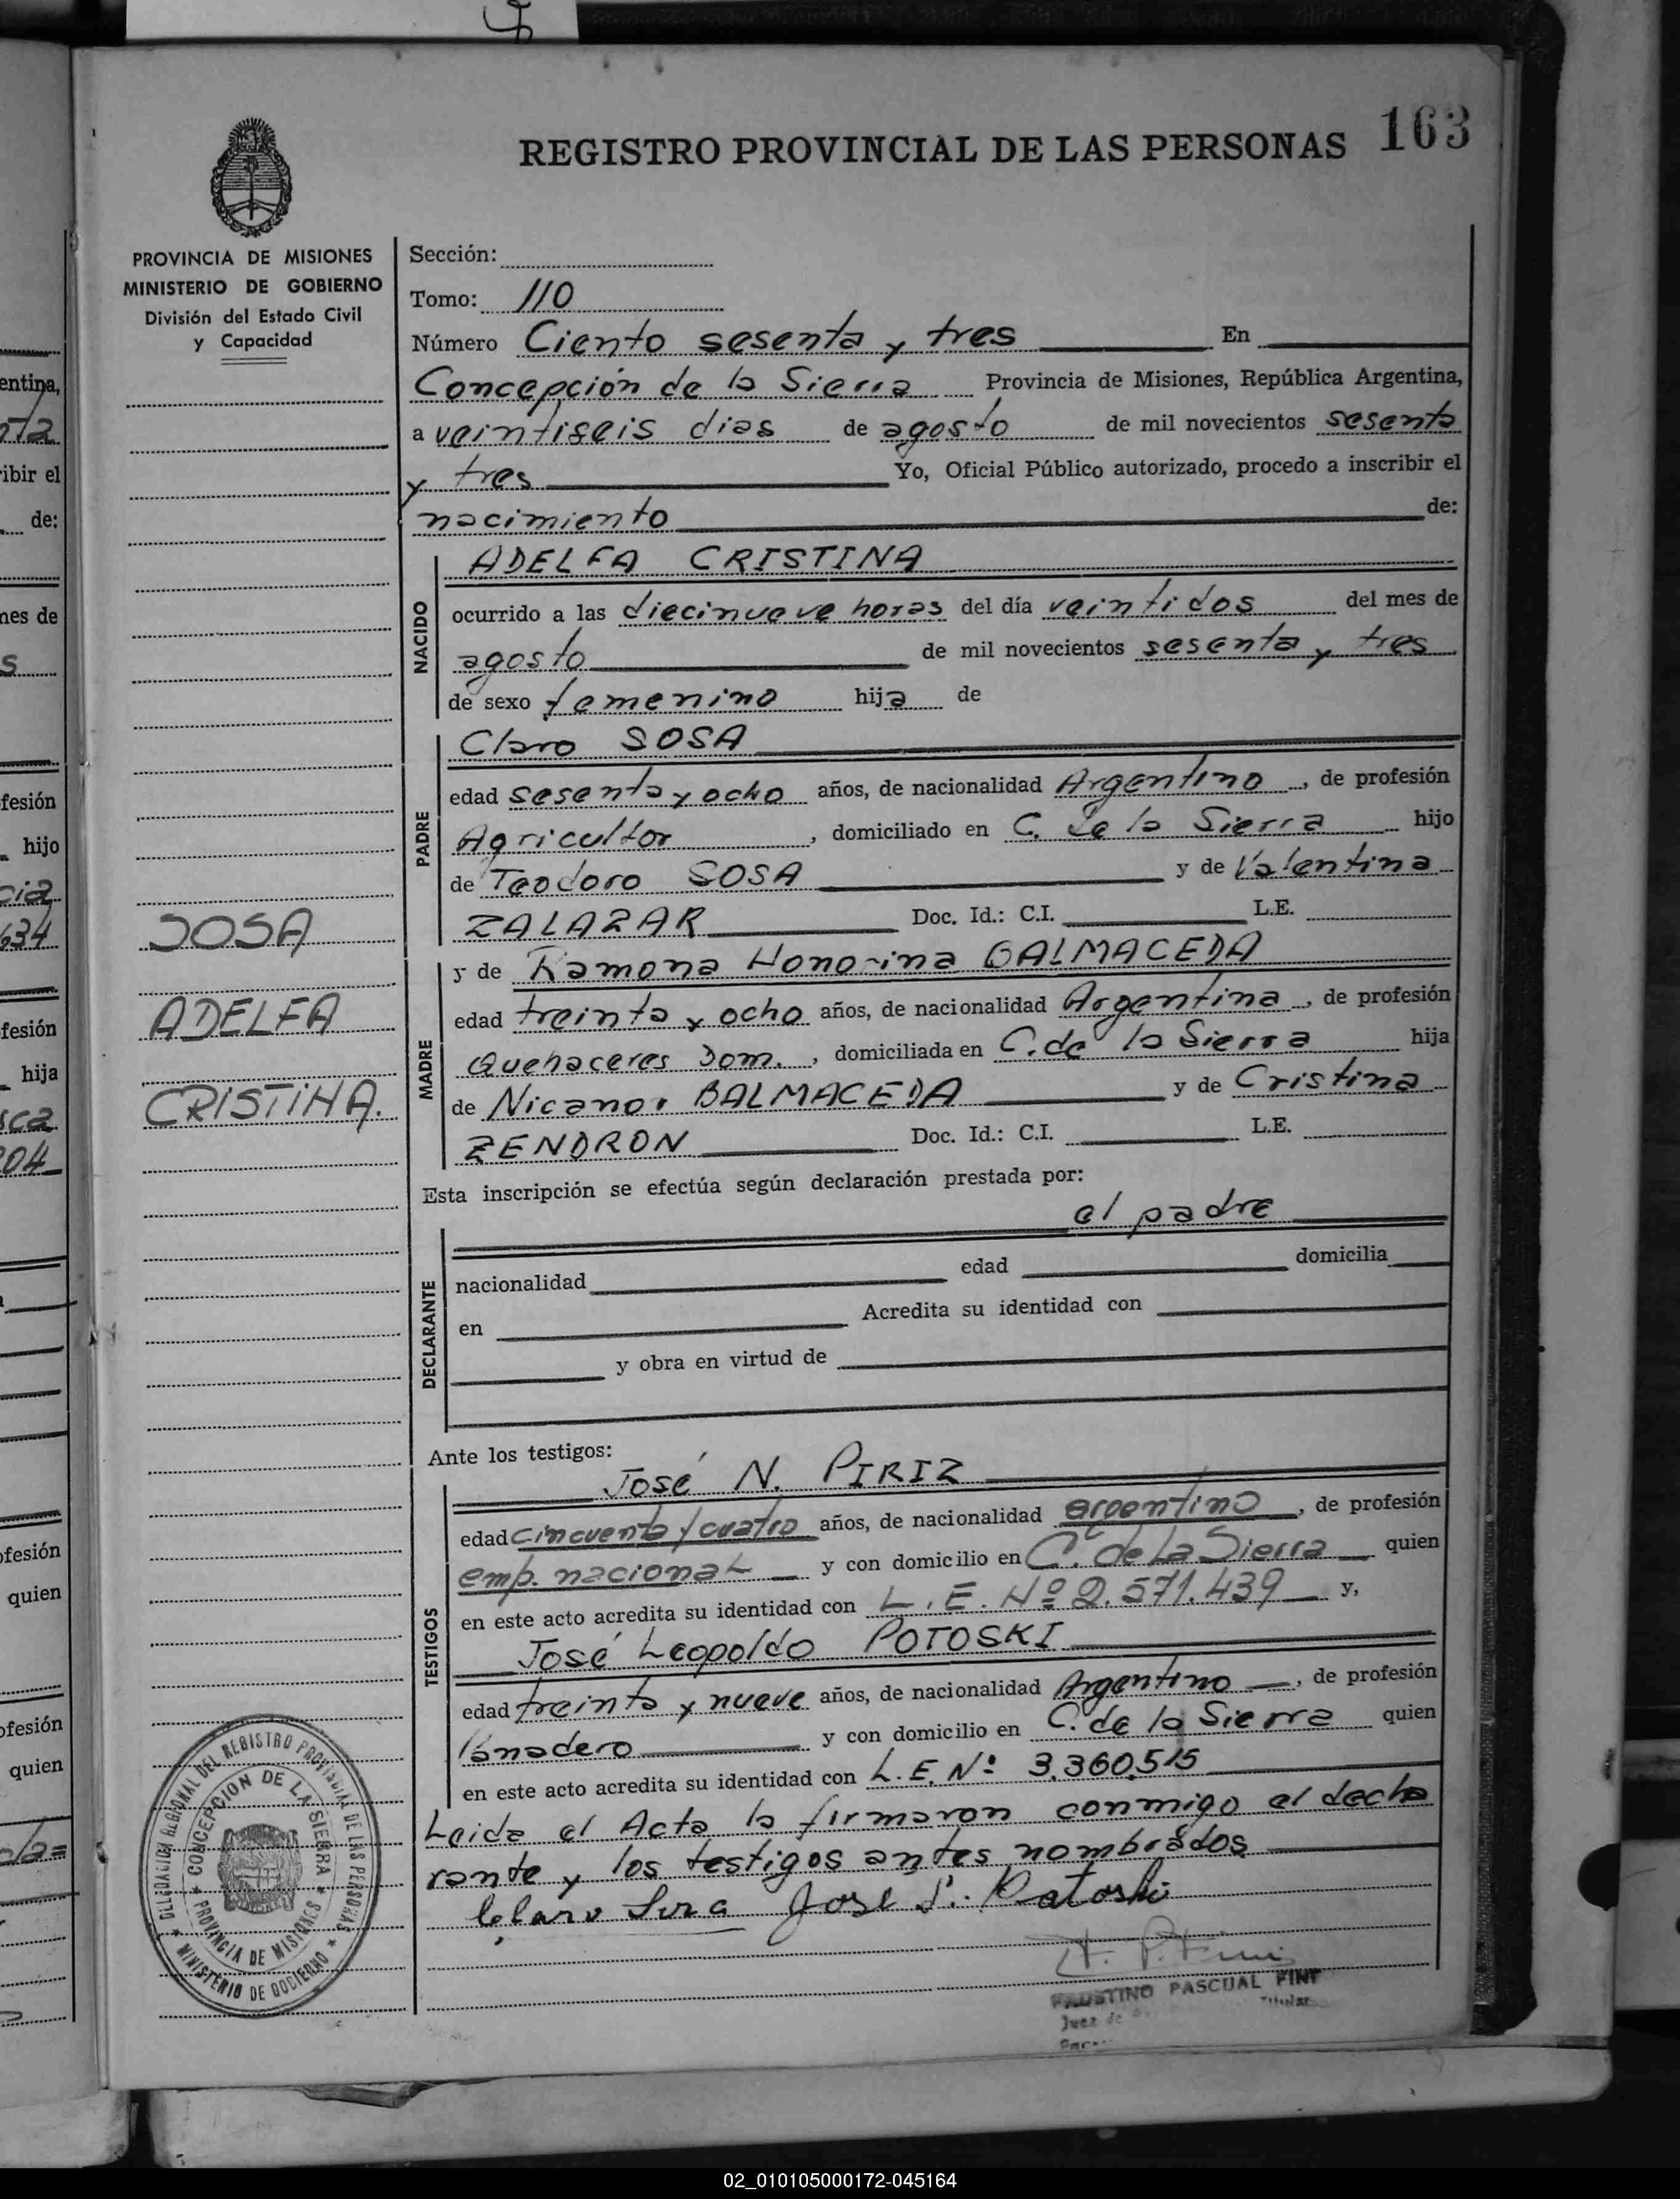 REGISTRO PROVINCIAL DE LAS PERSONAS 163
PROVINCIA DE MISIONES
MINISTERIO DE GOBIERNO
División del Estado Civil
y Capacidad
SOSA
ADELFA
CRISTINA.
Sección:
Tomo: 110
Número Ciento sesenta y tres En
Concepción de la Sierra Provincia de Misiones, República Argentina,
a veintiseis dias de agosto de mil novecientos sesenta
y tres Yo, Oficial Público autorizado, procedo a inscribir el
nacimiento de:
NACIDO
ADELFA CRISTINA
ocurrido a las diecinueve horas del día veintidos del mes de
agosto de mil novecientos sesenta y tres
de sexo femenino hija de
PADRE
Claro SOSA
edad sesenta y ocho años, de nacionalidad Argentino, de profesión
Agricultor, domiciliado en C. de la Sierra hijo
de Teodoro SOSA y de Valentina
ZALAZAR Doc. Id.: C.I. L.E.
MADRE
y de Ramona Honorina BALMACEDA
edad treinta y ocho años, de nacionalidad Argentina, de profesión
Quehaceres Dom., domiciliada en C. de la Sierra hija
de Nicanor BALMACEDA y de Cristina
ZENDRON Doc. Id.: C.I. L.E.
Esta inscripción se efectúa según declaración prestada por:
el padre
DECLARANTE
nacionalidad edad domicilia
en Acredita su identidad con
y obra en virtud de
Ante los testigos:
TESTIGOS
José N. PIRIZ
edad cincuenta y cuatro años, de nacionalidad argentino, de profesión
emp. nacional y con domicilio en C. de La Sierra quien
en este acto acredita su identidad con L.E. Nº 2.571.439 y,
José Leopoldo POTOSKI
edad treinta y nueve años, de nacionalidad Argentino, de profesión
panadero y con domicilio en C. de la Sierra quien
en este acto acredita su identidad con L.E. Nº 3.360.515
Leida el Acta la firmaron conmigo el decla
rante y los testigos antes nombrados
Claro Sosa José L. Potoski
FAUSTINO PASCUAL PINT
Titular
Juez de
DELEGACION REGIONAL DEL REGISTRO PROVINCIAL DE LAS PERSONAS
MINISTERIO DE GOBIERNO
CONCEPCION DE LA SIERRA
PROVINCIA DE MISIONES
entina,
ribir el
de:
mes de
fesión
hijo
cia
634
fesión
hija
sca
204
ofesión
quien
ofesión
quien
02_010105000172-045164